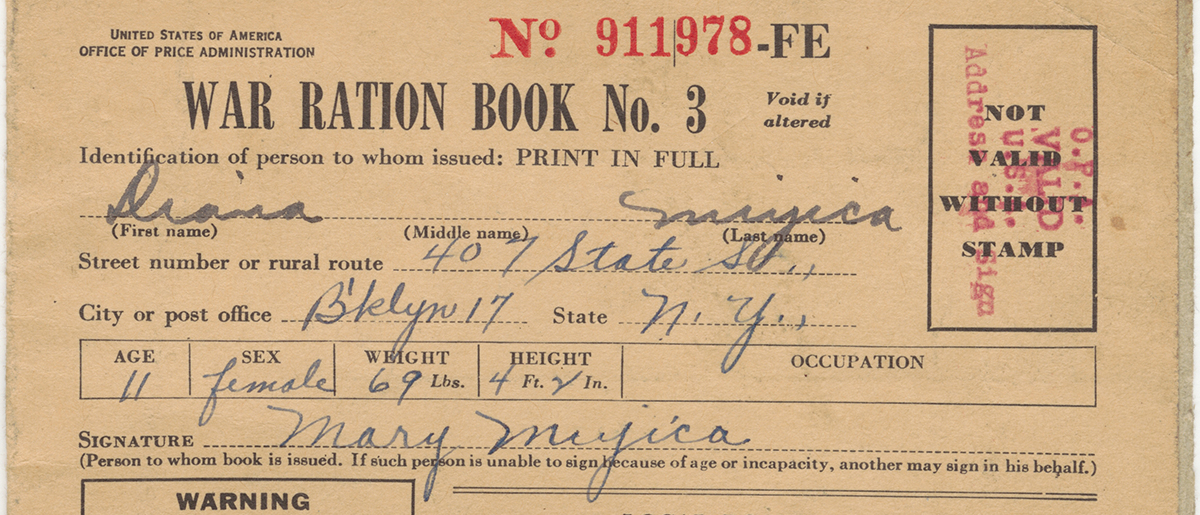 UNITED STATES OF AMERICA
OFFICE OF PRICE ADMINISTRATION
No 911978-FE
WAR RATION BOOK No. 3
Void if
altered
Identification of person to whom issued: PRINT IN FULL
Diana Mujica
(First name) (Middle name) (Last name)
Street number or rural route 407 State St.,
City or post office B'klyn 17 State N. Y.,
AGE SEX WEIGHT HEIGHT OCCUPATION
11 female 69 Lbs. 4 Ft. 2 In.
SIGNATURE Mary Mujica
(Person to whom book is issued. If such person is unable to sign because of age or incapacity, another may sign in his behalf.)
WARNING
NOT
VALID
WITHOUT
STAMP
O.P.A.
VALID
Address and Sign